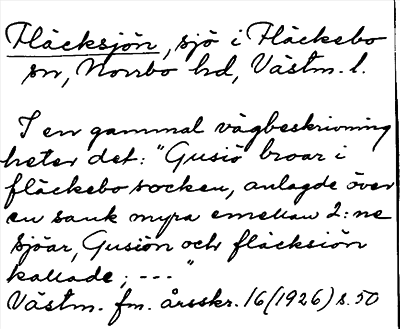 Fläcksjön, sjö i Fläckebo
sn, Norrbo hd, Västm. l.
I en gammal vägbeskrivning
heter det: "Gusiö broar i
fläckebo socken, anlagde över
en sank myra emellan 2:ne
sjöar, Gusiön och fläcksiön
kallade; ---"
Västm. fm. årsskr. 16 (1926) s. 50